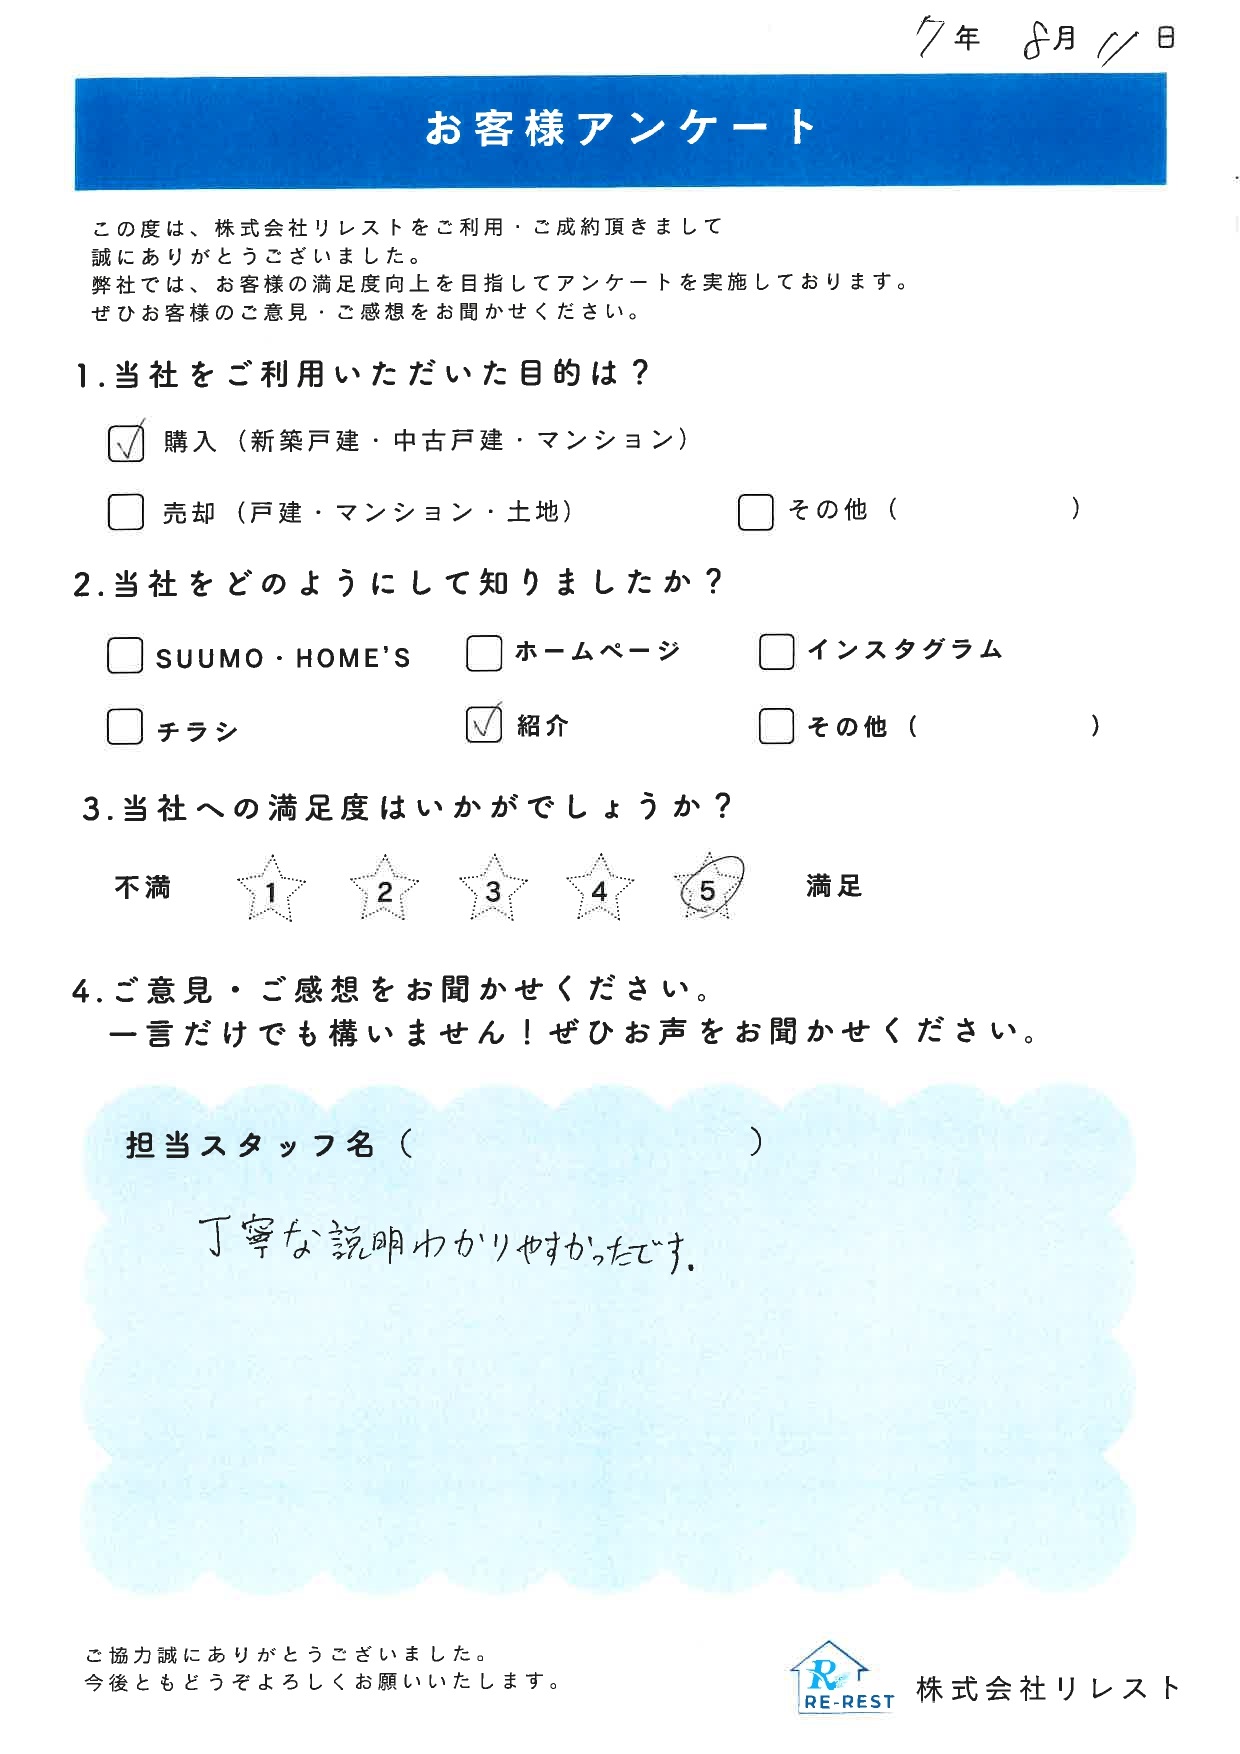 7年 8月 11日
お客様アンケート
この度は、株式会社リレストをご利用・ご成約頂きまして
誠にありがとうございました。
弊社では、お客様の満足度向上を目指してアンケートを実施しております。
ぜひお客様のご意見・ご感想をお聞かせください。
1.当社をご利用いただいた目的は？
購入（新築戸建・中古戸建・マンション）
売却（戸建・マンション・土地） その他（ ）
2.当社をどのようにして知りましたか？
SUUMO・HOME'S ホームページ インスタグラム
チラシ 紹介 その他（ ）
3.当社への満足度はいかがでしょうか？
不満 1 2 3 4 5 満足
4.ご意見・ご感想をお聞かせください。
一言だけでも構いません！ぜひお声をお聞かせください。
担当スタッフ名（ ）
丁寧な説明わかりやすかったです.
ご協力誠にありがとうございました。
今後ともどうぞよろしくお願いいたします。
R
RE-REST 株式会社リレスト